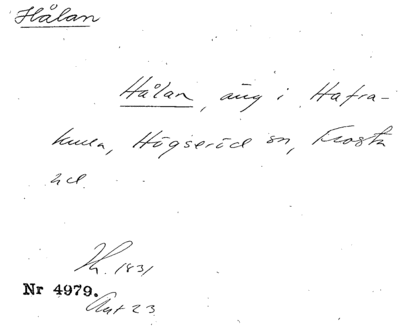 Hålan
Hålan, äng i Hafra-
kulla, Högseröd sn, Frosta
hd.
Kh. 1831
Nr 4979.
Akt 23